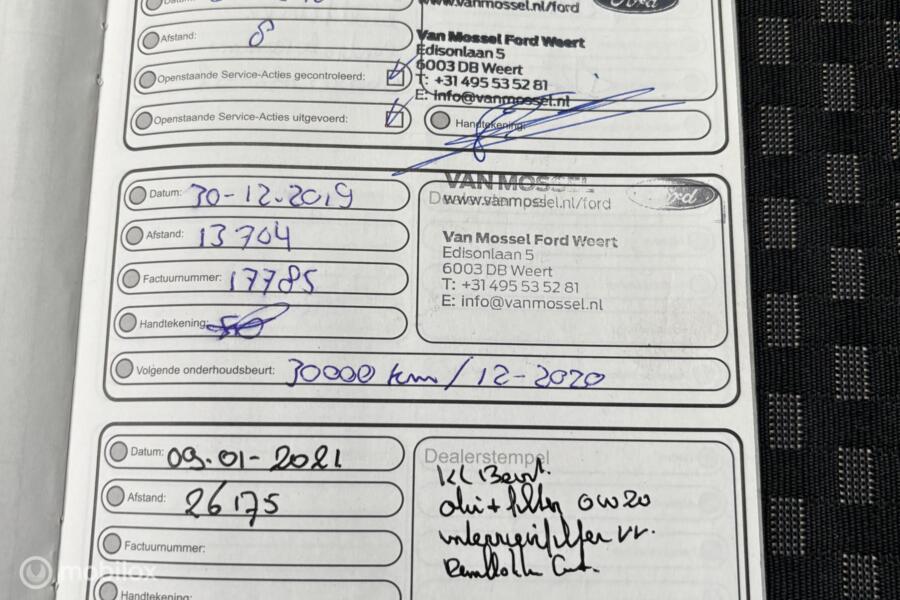 Datum:
www.vanmossel.nl/ford
Ford
Afstand: 8
Van Mossel Ford Weert
Edisonlaan 5
6003 DB Weert
T: +31 495 53 52 81
E: info@vanmossel.nl
Openstaande Service-Acties gecontroleerd:
Openstaande Service-Acties uitgevoerd:
Handtekening:
Datum: 30-12-2019
VAN MOSSEL
Ford
www.vanmossel.nl/ford
Afstand: 13704
Van Mossel Ford Weert
Edisonlaan 5
6003 DB Weert
T: +31 495 53 52 81
E: info@vanmossel.nl
Factuurnummer: 17785
Handtekening:
Volgende onderhoudsbeurt: 30000 km / 12-2020
Datum: 09-01-2021
Dealerstempel
Kl Beurt.
Afstand: 26175
olie + filter 0W20
Factuurnummer:
Handtekening:
mobilox